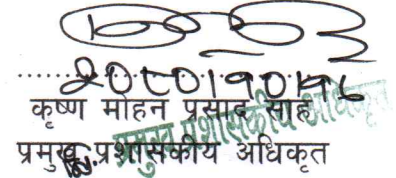 २०८०।१०।१६
कृष्ण मोहन प्रसाद साह
प्रमुख प्रशासकीय अधिकृत
प्रमुख प्रशासकीय अधिकृत